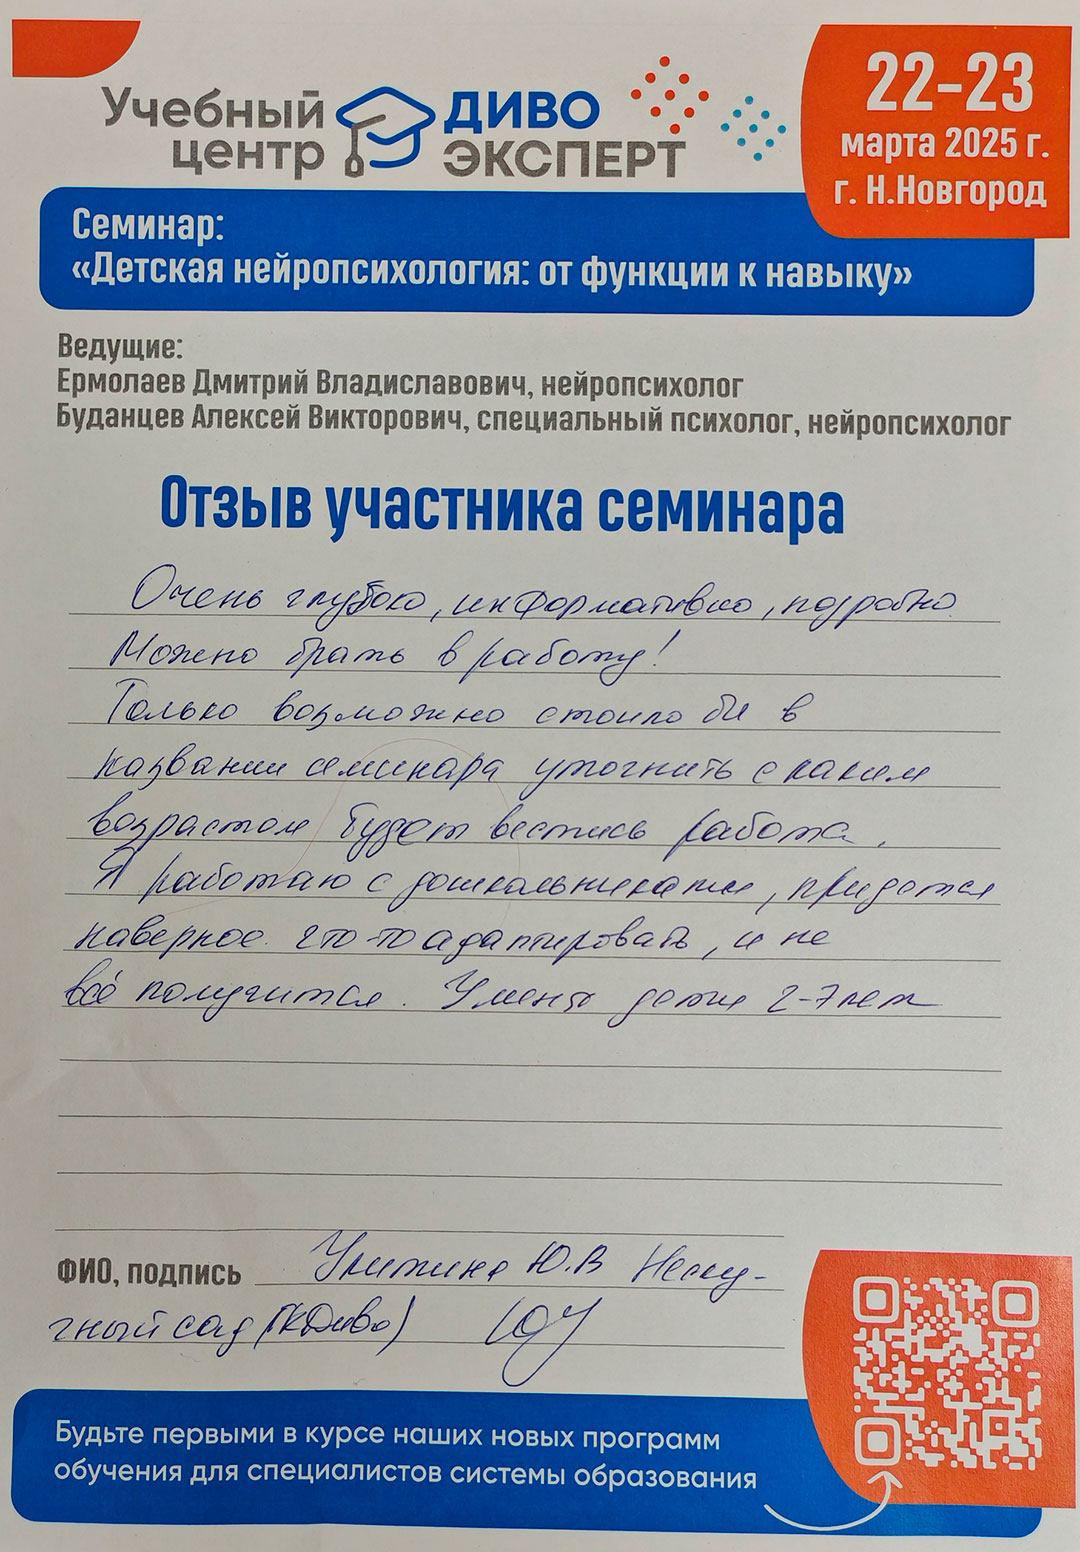 Учебный центр
ДИВО ЭКСПЕРТ
22-23
марта 2025 г.
г. Н.Новгород
Семинар:
«Детская нейропсихология: от функции к навыку»
Ведущие:
Ермолаев Дмитрий Владиславович, нейропсихолог
Буданцев Алексей Викторович, специальный психолог, нейропсихолог
Отзыв участника семинара
Очень глубоко, информативно, подробно.
Можно брать в работу!
Только возможно стоило бы в
названии семинара уточнить с каким
возрастом будет вестись работа.
Я работаю с дошкольниками, придется
наверное что-то адаптировать, и не
всё получится. У меня дети 2-7 лет
ФИО, подпись Ю.В Неску-
чный сад (ГК Диво)
Будьте первыми в курсе наших новых программ
обучения для специалистов системы образования